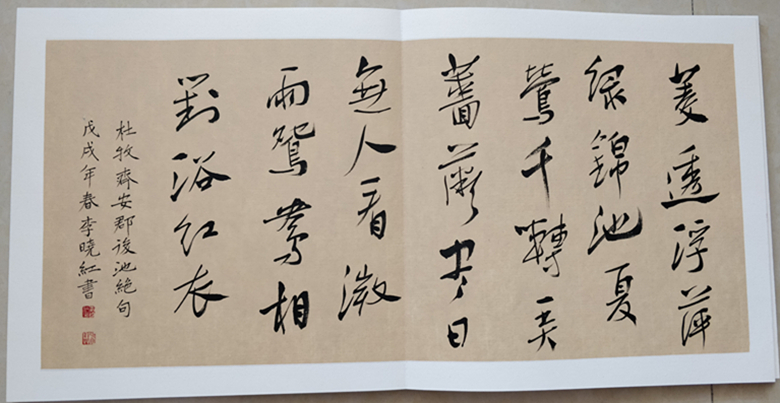 菱透浮萍
绿錦池夏
鶯千囀弄
薔薇尽日
無人看微
雨鴛鴦相
對浴红衣
杜牧齊安郡後池絶句
戊戌年春李曉紅書